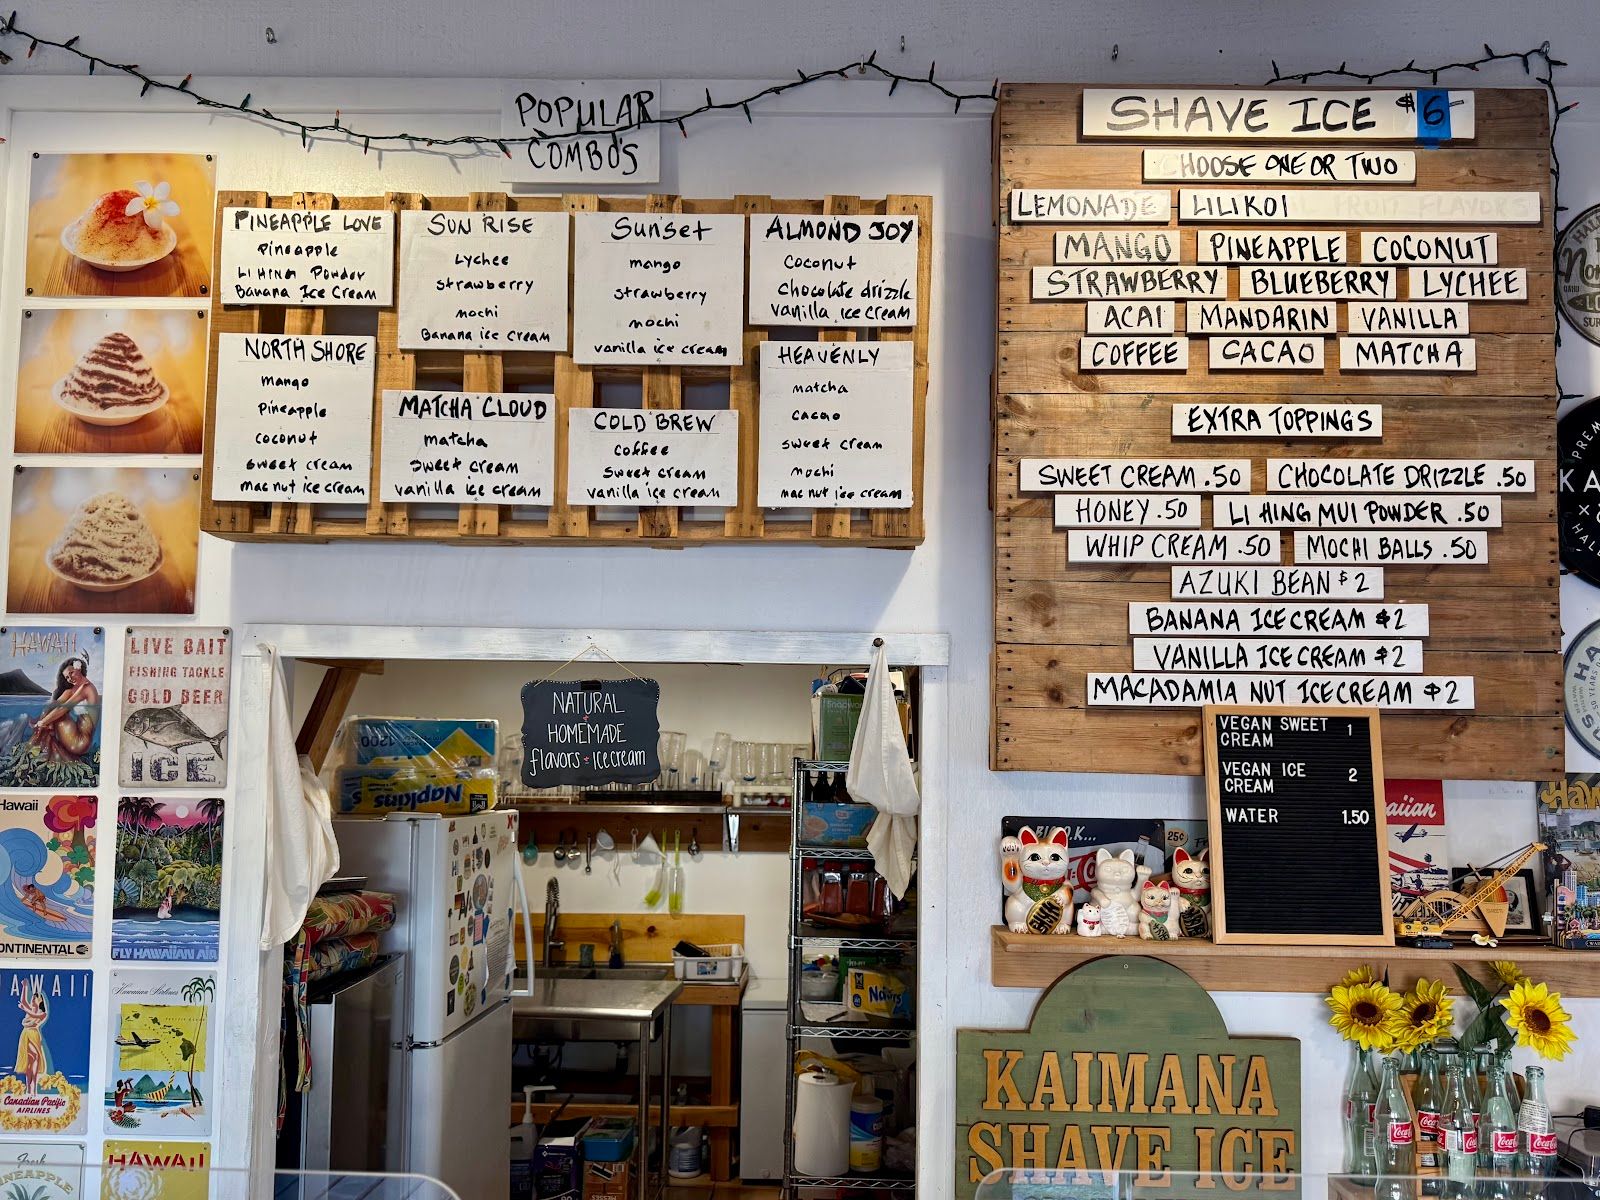 POPULAR
COMBO'S
PINEAPPLE LOVE
Pineapple
LI HING POWDER
Banana Ice Cream
SUN RISE
Lychee
strawberry
mochi
Banana ice cream
Sunset
mango
strawberry
mochi
vanilla ice cream
ALMOND JOY
Coconut
Chocolate drizzle
vanilla ice cream
NORTH SHORE
mango
Pineapple
coconut
sweet cream
mac nut ice cream
MATCHA CLOUD
matcha
sweet cream
vanilla ice cream
COLD BREW
coffee
sweet cream
vanilla ice cream
HEAVENLY
matcha
cacao
sweet cream
mochi
mac nut ice cream
SHAVE ICE $6
CHOOSE ONE OR TWO
LEMONADE LILIKOI
MANGO PINEAPPLE COCONUT
STRAWBERRY BLUEBERRY LYCHEE
ACAI MANDARIN VANILLA
COFFEE CACAO MATCHA
EXTRA TOPPINGS
SWEET CREAM .50 CHOCOLATE DRIZZLE .50
HONEY .50 LI HING MUI POWDER .50
WHIP CREAM .50 MOCHI BALLS .50
AZUKI BEAN $2
BANANA ICE CREAM $2
VANILLA ICE CREAM $2
MACADAMIA NUT ICE CREAM $2
VEGAN SWEET 1
CREAM
VEGAN ICE 2
CREAM
WATER 1.50
NATURAL
+
HOMEMADE
flavors + icecream
KAIMANA
SHAVE ICE
HAWAII
LIVE BAIT
FISHING TACKLE
COLD BEER
ICE
Hawaii
CONTINENTAL
FLY HAWAIIAN AIR
HAWAII
Canadian Pacific
AIRLINES
Hawaiian Airlines
Fresh
PINEAPPLE
HAWAII
1200
Napkins
25¢
Coca-Cola